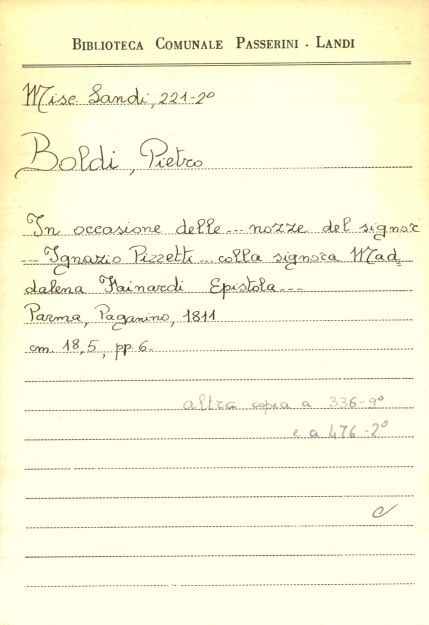 BIBLIOTECA COMUNALE PASSERINI - LANDI
Misc Landi, 221-2º
Boldi, Pietro
In occasione delle --- nozze del signor
--- Ignazio Pizzetti --- colla signora Mad=
dalena Mainardi Epistola ---
Parma, Paganino, 1811
cm. 18,5, pp 6.
altra copia a 336-9º
e a 476-2º